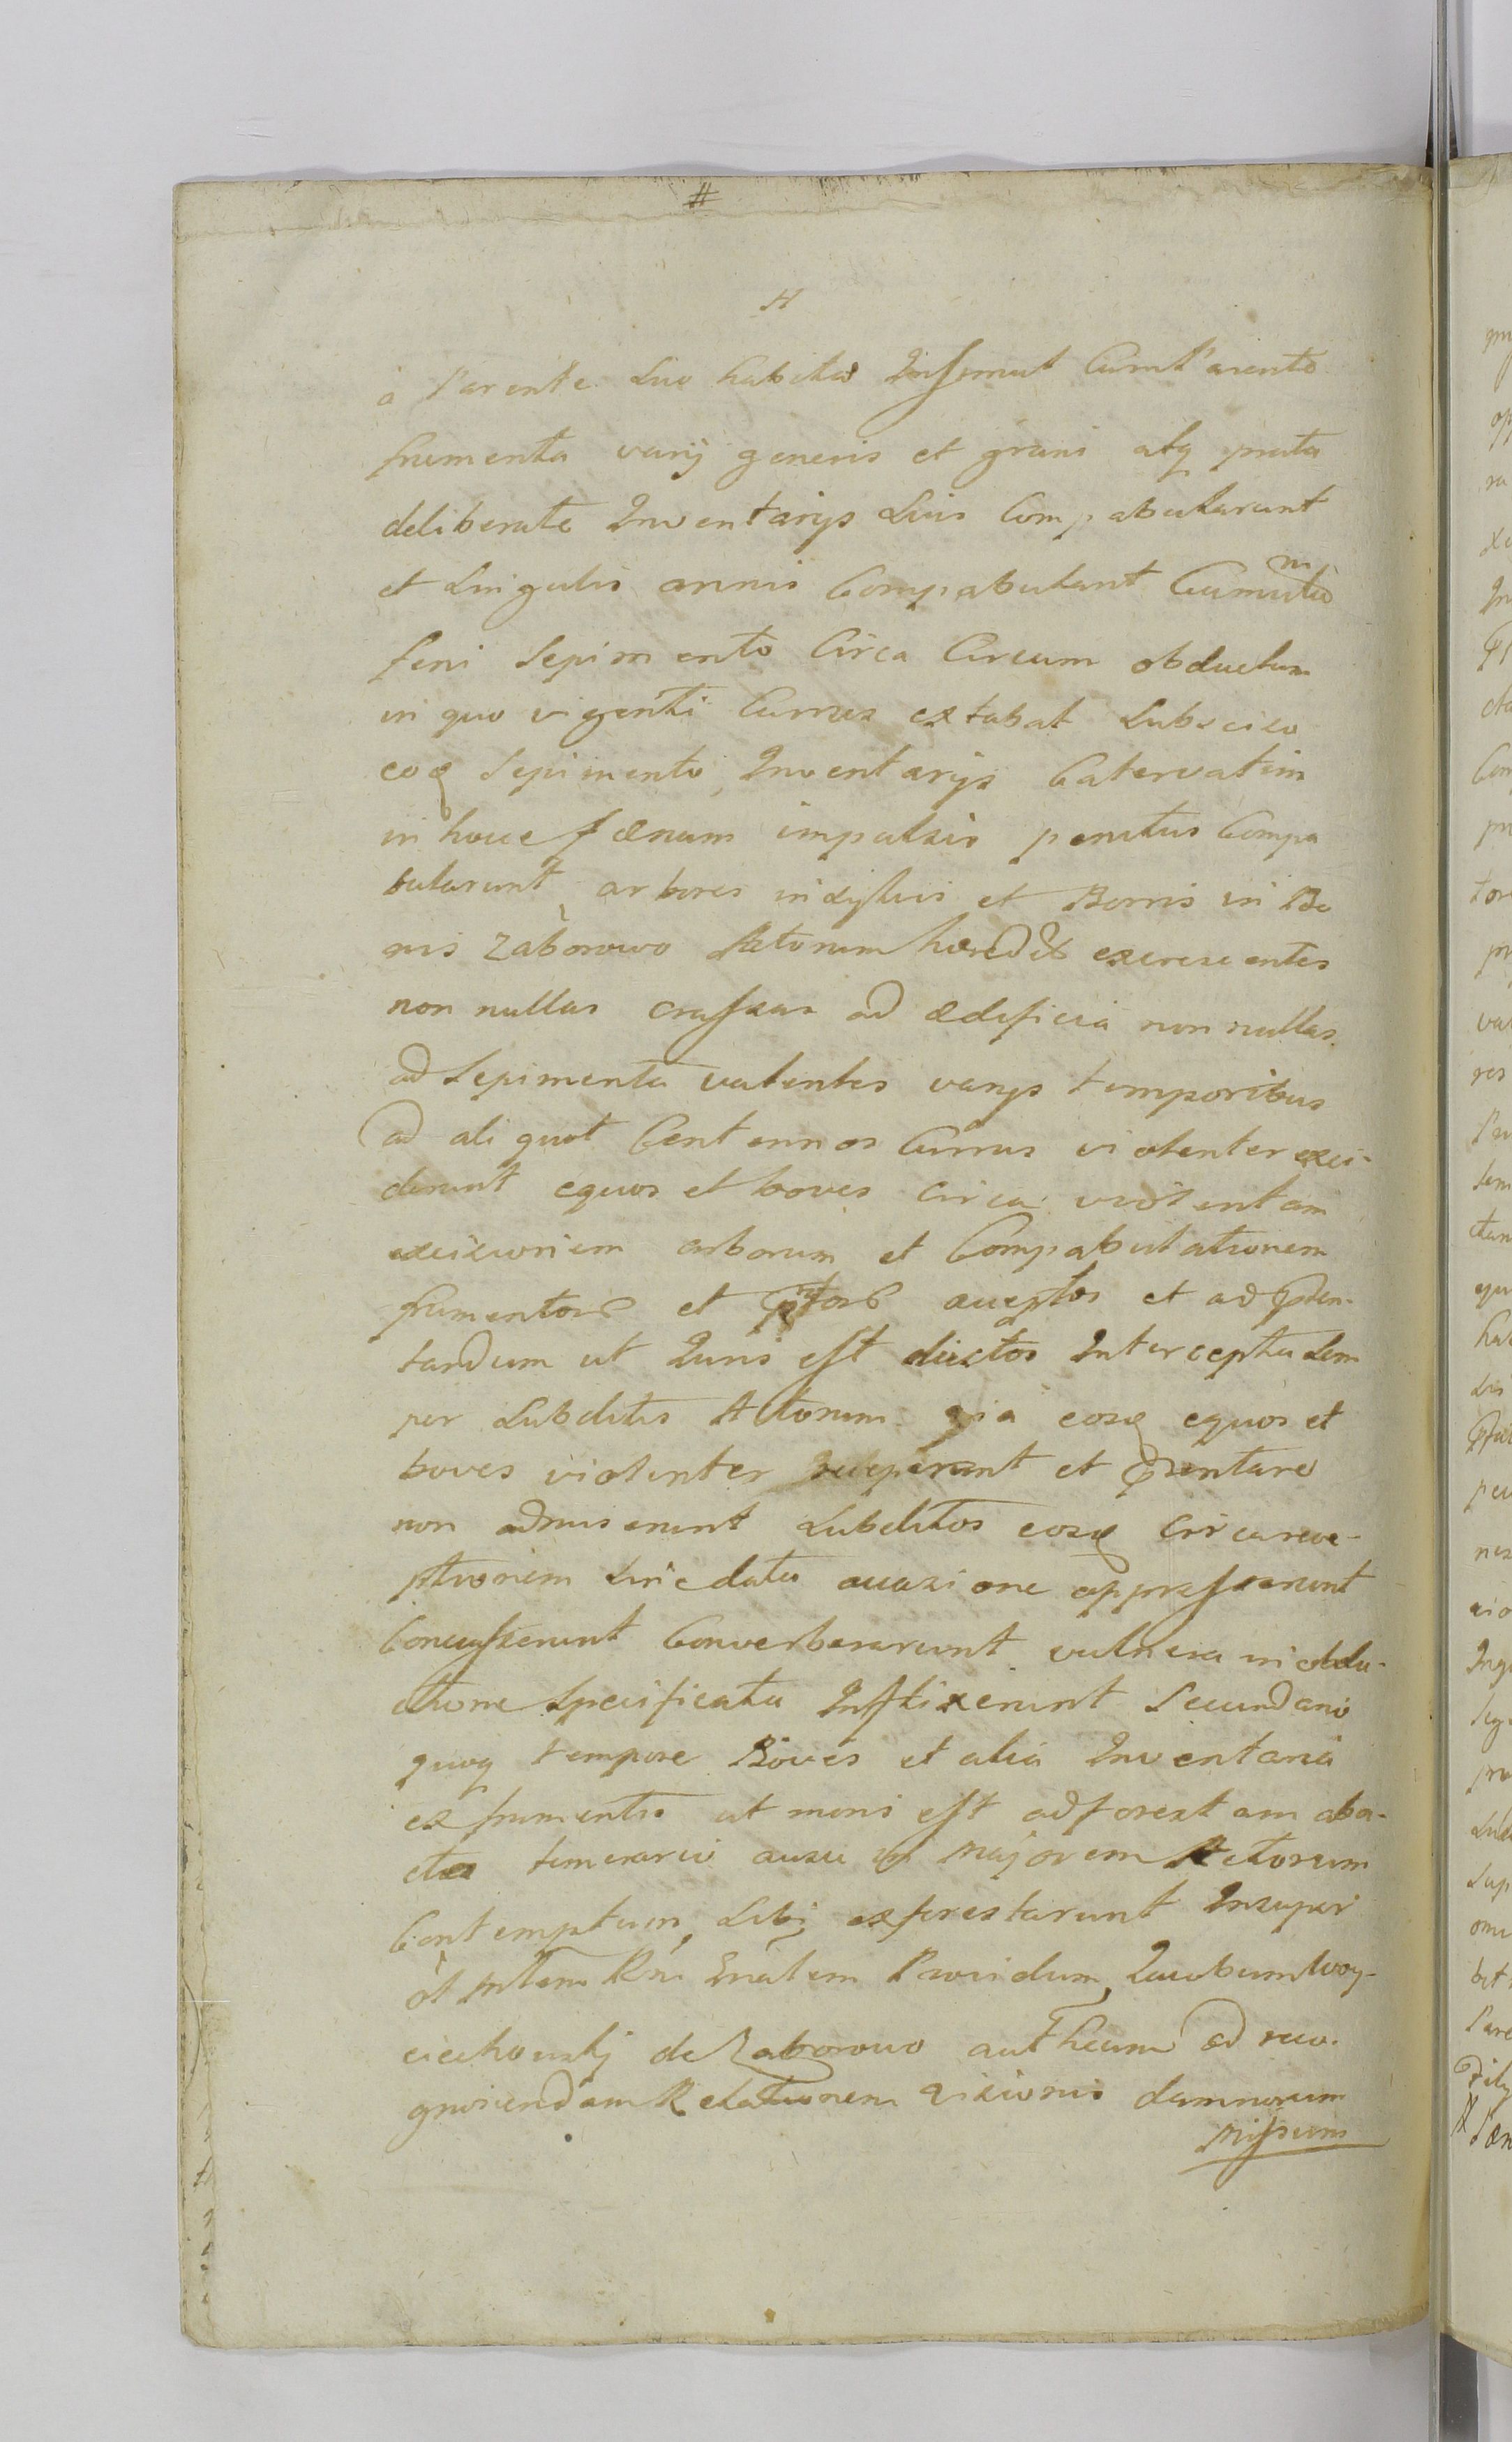 #
H
à Parente suo habitas Insimul cum Parente
frumenta varij generis et grani atq prata
deliberate Inventarijs suis Compabularunt
et singulis annis Compabulant Cumulum
feni Sepimento Circa Circum obductum
in quo viginti Currus extabat subsciso
eoq Sepimento, Inventarijs Catervatim
in hocce fœnum impulsis penitus Compa
bularunt, arbores in sylvis et Borris in Bo
nis Zaborowo Actorum hæredit excrescentes
non nullas crassas ad ædificia non nullas
ad Sepimenta valentes varijs temporibus
ad ali quot Centennos Currus violenter exci-
derunt equos et boves circa violentam
excisionem arborum et Compabulationem
frumentor et prator acceptos et ad præsen-
tandum ut Juris est ductos Intercepta sem
per Subditis Actorum via eosq equos et
boves violenter receperunt et præsentare
non admiserunt Subditos eosq circa rece-
ptionem sine data occasione oppresserunt
Concusserunt Converberarunt vulnera in obdu-
ctione specificata Inflixerunt Secundario
quoq tempore Boves et alia Inventaria
ex frumentis ut moris est ad forestam aba-
ctas temerario ausu in majorem Actorum
Contemptum, sibi exforestarunt Insuper
Mtem Rx Gnalem Providum, Jacobum Woy-
ciechowskj de Zaborowo ad reco-
gnoscendam Relationem visionis damnorum
missum